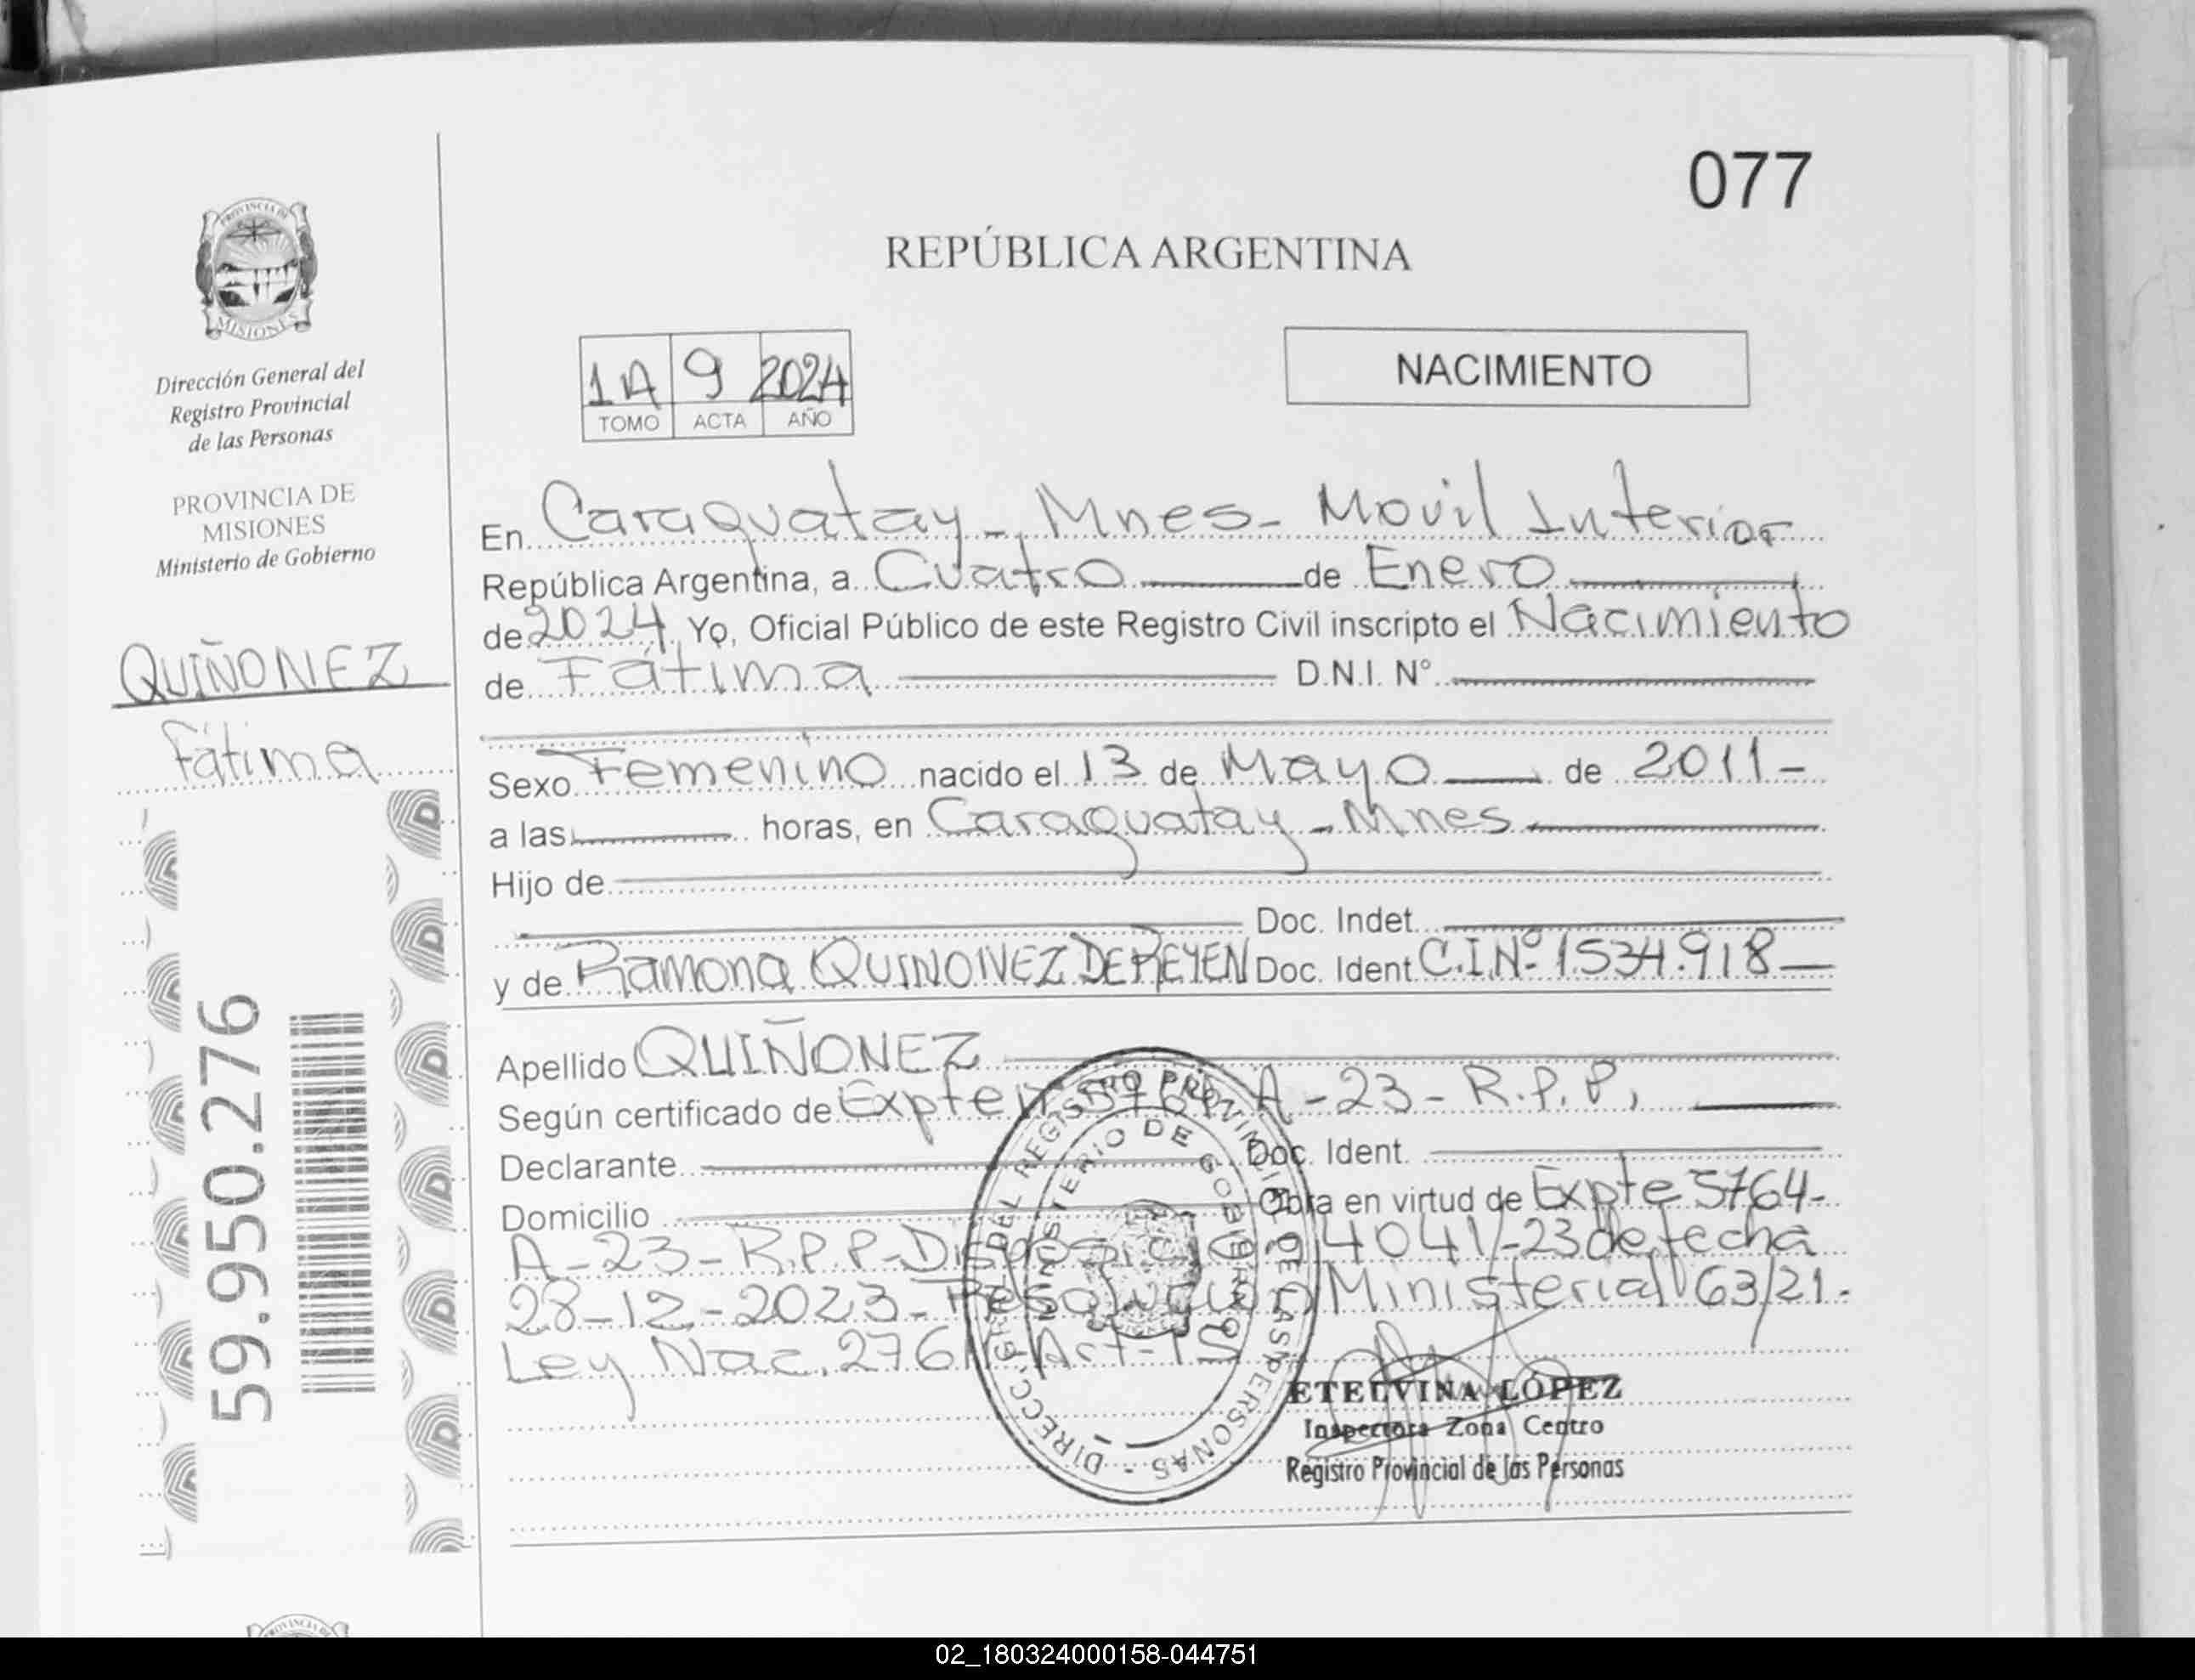 077
REPÚBLICA ARGENTINA
PROVINCIA DE
MISIONES
Dirección General del
Registro Provincial
de las Personas
PROVINCIA DE
MISIONES
Ministerio de Gobierno
QUIÑONEZ
Fátima
59.950.276
1A 9 2024
TOMO ACTA AÑO
NACIMIENTO
En Caraguatay - Mnes - Movil Interior
República Argentina, a Cuatro de Enero
de 2024 Yo, Oficial Público de este Registro Civil inscripto el Nacimiento
de Fátima D.N.I. Nº
Sexo Femenino nacido el 13 de Mayo de 2011-
a las horas, en Caraguatay - Mnes
Hijo de
Doc. Indet.
y de Ramona QUINONEZ DE REYEN Doc. Ident C.I.Nº 1534.918
Apellido QUIÑONEZ
Según certificado de Expte 5764 A-23-R.P.P.
Declarante Doc. Ident.
Domicilio Obra en virtud de Expte 5764-
A-23-R.P.P-Disposición 4041/-23 de fecha
28-12-2023-Resolución Ministerial 63/21.
Ley Nac. 27611-Art-15
DIRECC. GRAL. DEL REGISTRO PROVINCIAL DE LAS PERSONAS -
MINISTERIO DE GOBIERNO
ETELVINA LÓPEZ
Inspectora Zona Centro
Registro Provincial de las Personas
02_180324000158-044751